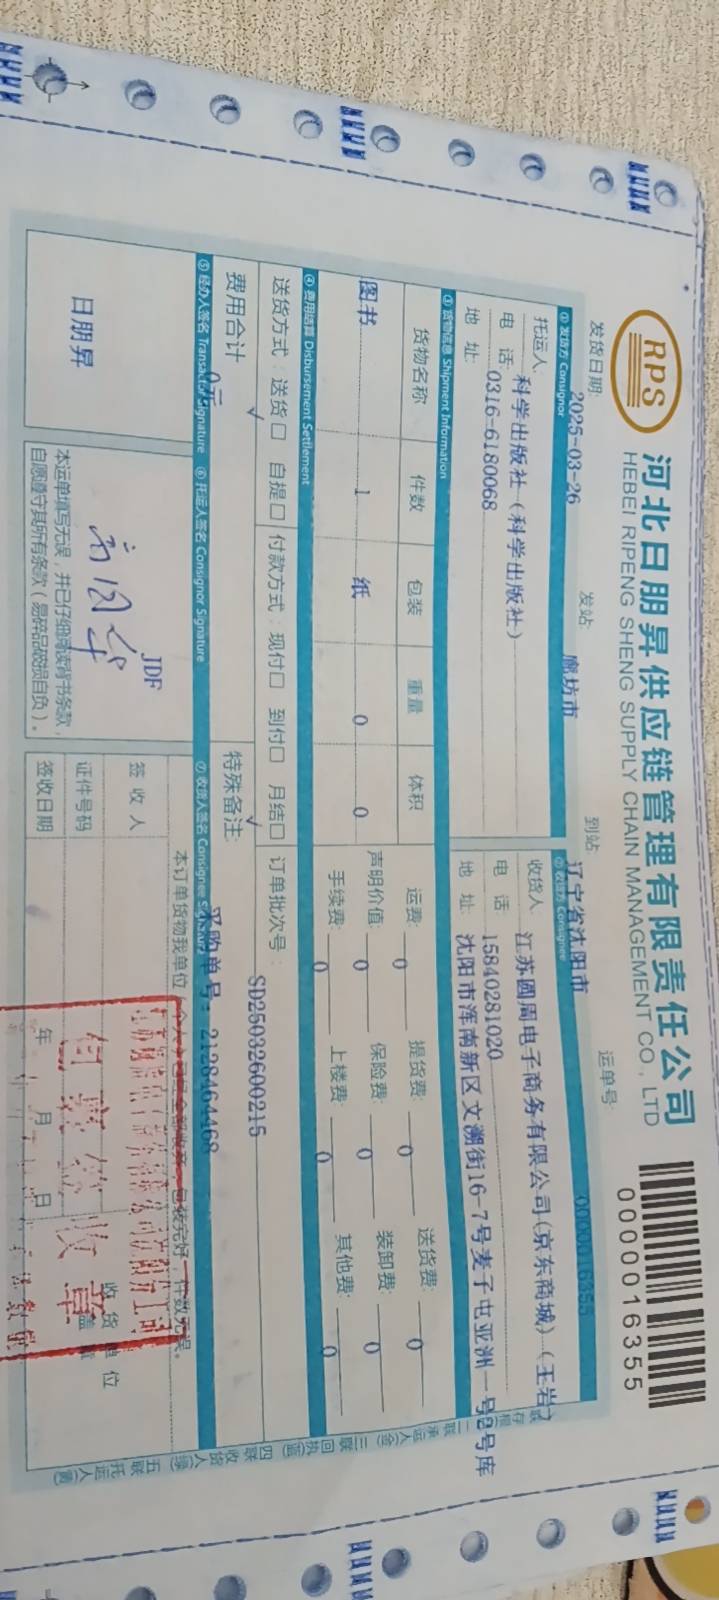 RPS
河北日朋昇供应链管理有限责任公司
HEBEI RIPENG SHENG SUPPLY CHAIN MANAGEMENT CO., LTD
0000016355
发货日期: 2025-03-26 发站: 廊坊市 到站: 辽宁省沈阳市 运单号: 0000016355
① 发货方 Consignor ② 收货方 Consignee
托运人: 科学出版社（科学出版社） 收货人 江苏圆周电子商务有限公司(京东商城)（王岩）
电 话: 0316-6180068 电 话 15840281020
地 址: 地 址 沈阳市浑南新区文溯街16-7号麦子屯亚洲一号2号库
③ 货物信息 Shipment Information
货物名称 件数 包装 重量 体积 运费: 0 提货费: 0 送货费: 0
声明价值: 0 保险费: 0 装卸费: 0
图书 1 纸 0 0 手续费: 0 上楼费: 0 其他费: 0
④ 费用结算 Disbursement Settlement
送货方式: 送货□ 自提□ 付款方式: 现付□ 到付□ 月结□ 订单批次号: SD25032600215
费用合计 0元 特殊备注: 采购单号: 2128464468
⑤ 经办人签名 Transactor Signature ⑥ 托运人签名 Consignor Signature ⑦ 收货人签名 Consignee Signature
日朋昇
JDF
本运单填写无误，并已仔细阅读背书条款，
自愿遵守其所有条款（易碎品破损自负）。
本订单货物我单位（个人）已经全部收齐，包装完好，件数无误。
签 收 人
证件号码
签收日期 年 月 日
收货单位
盖章
收章
一联存根 二联承运人(金) 三联回执(蓝) 四联收货人(绿) 五联托运人(黄)